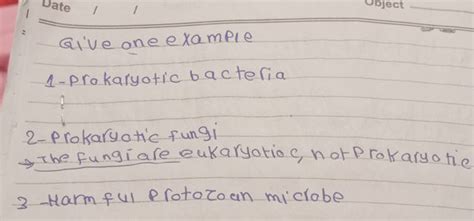 Date / /
Object
Give one example
1-Prokaryotic bacteria
2-Prokaryotic fungi
→ The fungi are eukaryotic, not Prokaryotic
3-Harmful Protozoan microbe